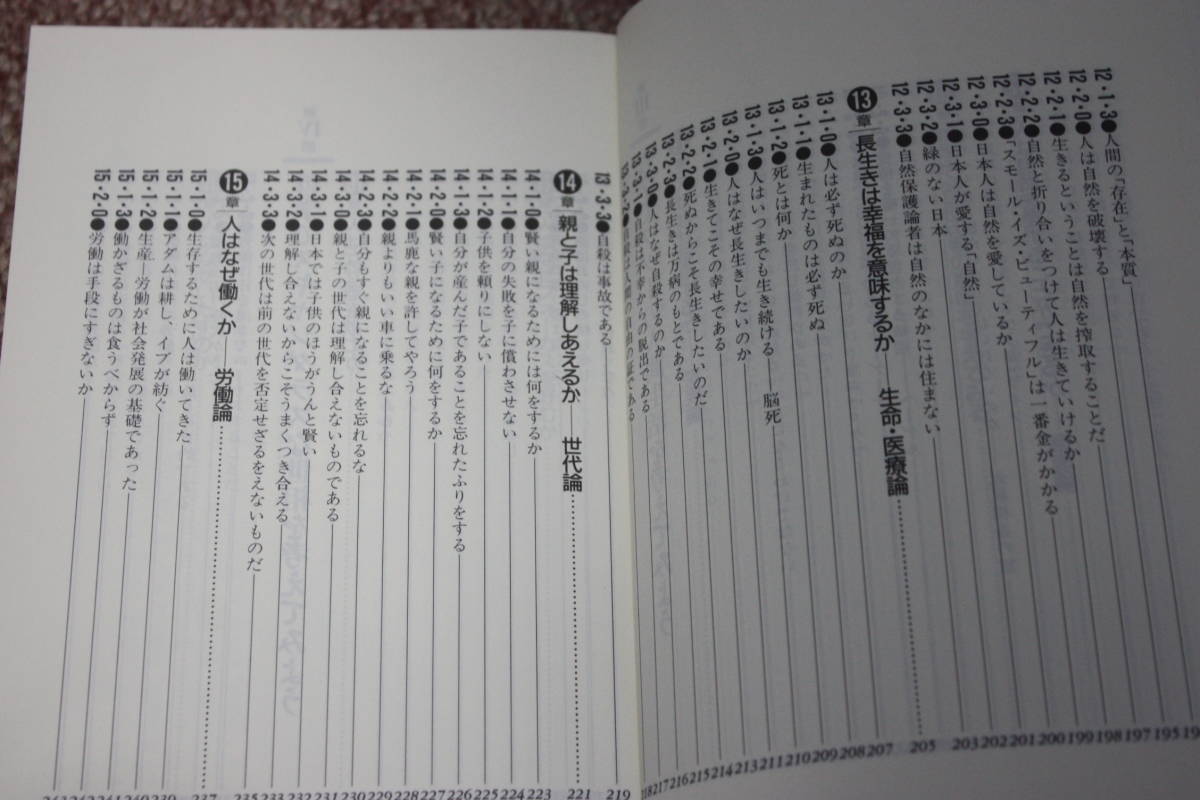 12・1・3●人間の「存在」と「本質」
12・2・0●人は自然を破壊する 197
12・2・1●生きるということは自然を搾取することだ 198
12・2・2●自然と折り合いをつけて人は生きていけるか 199
12・2・3●「スモール・イズ・ビューティフル」は一番金がかかる 200
12・3・0●日本人は自然を愛しているか 201
12・3・1●日本人が愛する「自然」 202
12・3・2●緑のない日本 203
12・3・3●自然保護論者は自然のなかには住まない
13章 長生きは幸福を意味するか 生命・医療論 205
13・1・0●人は必ず死ぬのか 207
13・1・1●生まれたものは必ず死ぬ 208
13・1・2●死とは何か 209
13・1・3●人はいつまでも生き続ける——脳死 210
13・2・0●人はなぜ長生きしたいのか 211
13・2・1●生きてこその幸せである 213
13・2・2●死ぬからこそ長生きしたいのだ 214
13・2・3●長生きは万病のもとである 215
13・3・0●人はなぜ自殺するのか 216
13・3・1●自殺は不幸からの脱出である 217
自殺は人間の自由の証である 218
13・3・3●自殺は事故である 219
14章 親と子は理解しあえるか——世代論 221
14・1・0●賢い親になるためには何をするか 223
14・1・1●自分の失敗を子に償わさせない 224
14・1・2●子供を頼りにしない 225
14・1・3●自分が産んだ子であることを忘れたふりをする 226
14・2・0●賢い子になるために何をするか 227
14・2・1●馬鹿な親を許してやろう 228
14・2・2●親よりもいい車に乗るな 229
14・2・3●自分もすぐ親になることを忘れるな 230
14・3・0●親と子の世代は理解し合えないものである 231
14・3・1●日本では子供のほうがうんと賢い 232
14・3・2●理解し合えないからこそうまくつき合える 233
14・3・3●次の世代は前の世代を否定せざるをえないものだ 235
15章 人はなぜ働くか——労働論 237
15・1・0●生存するために人は働いてきた 239
15・1・1●アダムは耕し、イブが紡ぐ 240
15・1・2●生産—労働が社会発展の基礎であった 241
15・1・3●働かざるものは食うべからず
15・2・0●労働は手段にすぎないか